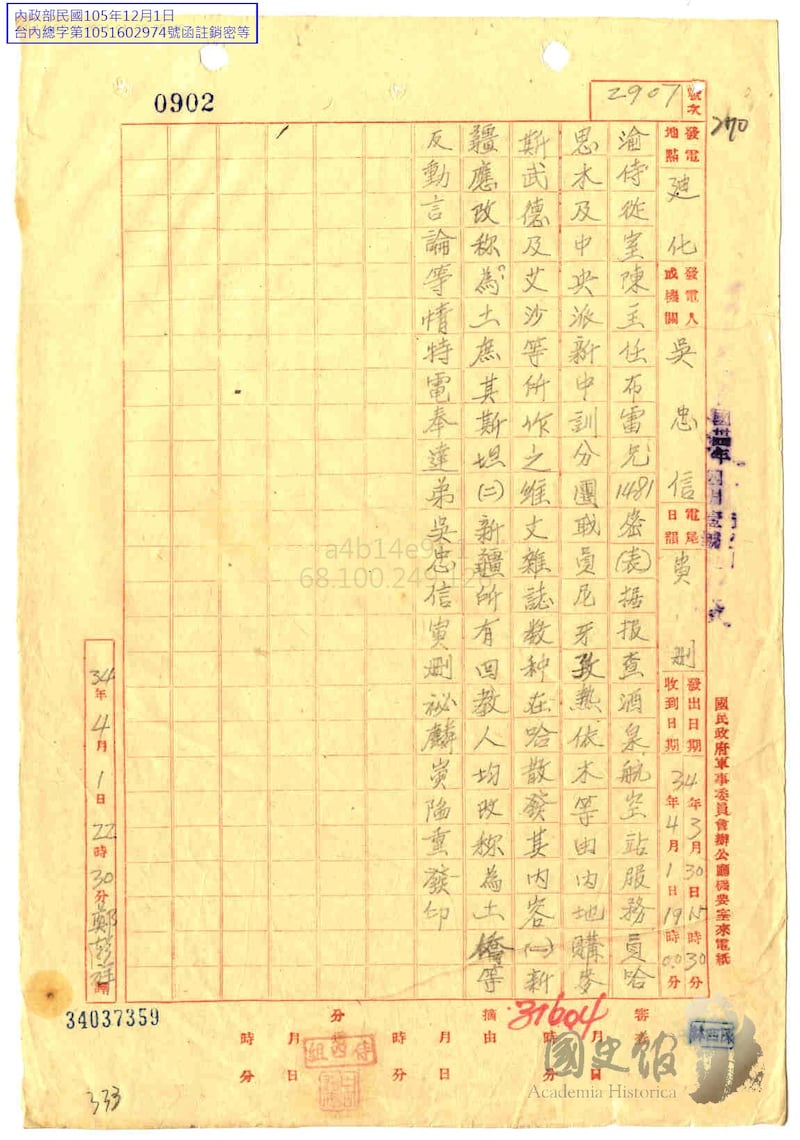 內政部民國105年12月1日
台內總字第1051602974號函註銷密等
0902
號次 2907
270
發電地點 廸化
發電人或機關 吳忠信
電尾日韻 寅刪
發出日期 34年3月30日15時30分
收到日期 34年4月1日19時00分
國民政府軍事委員會辦公廳機要室來電紙
渝侍從室陳主任布雷兄1481密(表)据报查酒泉航空站服務員哈
思木及中央派新中訓分團職員尼牙孜熱依木等由内地購麥
斯武德及艾沙等所作之維文雜誌数种在哈散發其内容(一)新
疆應改称為土庶其斯坦(二)新疆所有回教人均改称為土僑等
反動言論等情特電奉達弟吳忠信寅刪祕麟寅陷重發印
34年4月1日22時30分鄭
34037359
31604
審
摘由
分
月日
時分
月日
時分
侍四組
國史館
Academia Historica
333
68.100.249.12